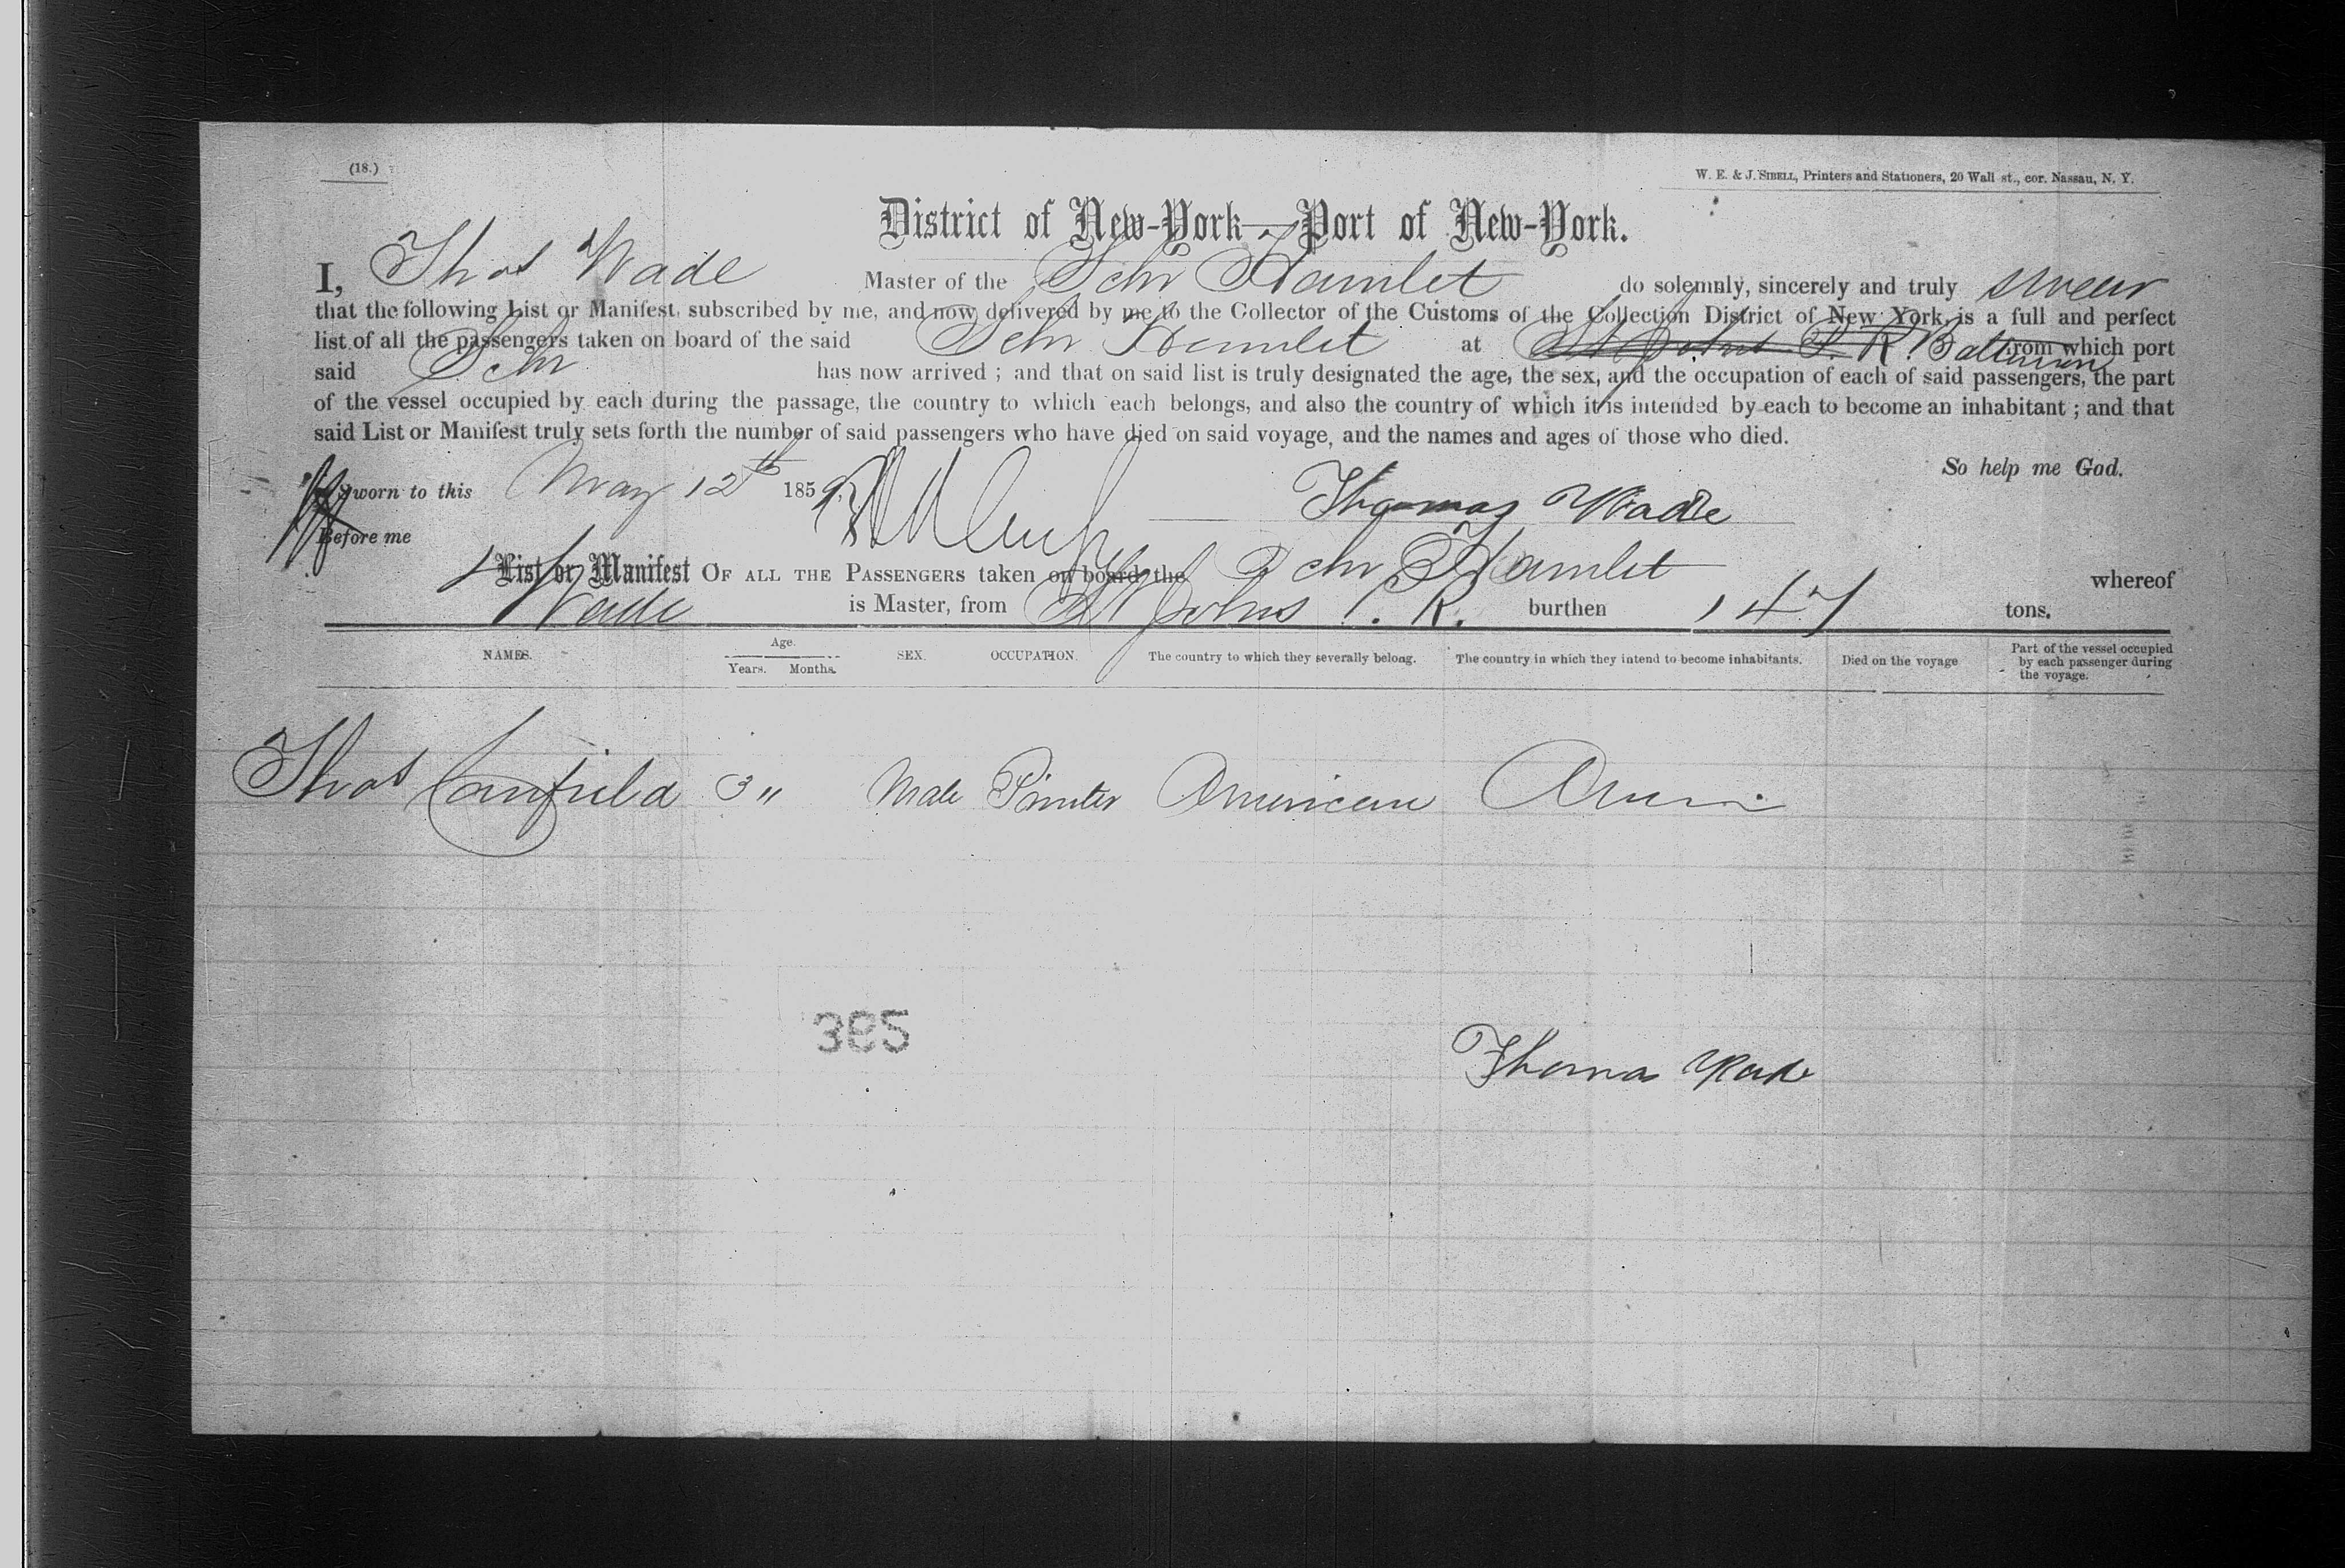 (18.)
W. E. & J. SIBELL, Printers and Stationers, 20 Wall st., cor. Nassau, N. Y.
District of New-York—Port of New-York.
I, Thos Wade Master of the Schr Hamlet do solemnly, sincerely and truly swear
that the following List or Manifest, subscribed by me, and now delivered by me to the Collector of the Customs of the Collection District of New York, is a full and perfect
list of all the passengers taken on board of the said Schr Hamlet at St Johns P. R. from which port
said Schr has now arrived ; and that on said list is truly designated the age, the sex, and the occupation of each of said passengers, the part
of the vessel occupied by each during the passage, the country to which each belongs, and also the country of which it is intended by each to become an inhabitant ; and that
said List or Manifest truly sets forth the number of said passengers who have died on said voyage, and the names and ages of those who died.
So help me God.
Sworn to this May 12th 1859,
Thomas Wade
Before me
List or Manifest OF ALL THE PASSENGERS taken on board the Schr Hamlet whereof
Wade is Master, from St Johns P. R. burthen 147 tons.
NAMES. Age. Years. Months. SEX. OCCUPATION. The country to which they severally belong. The country in which they intend to become inhabitants. Died on the voyage Part of the vessel occupied by each passenger during the voyage.
Thos Canfield 3 " Male Painter American
385
Thomas Wade